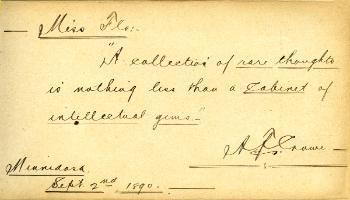 Miss Flo:-
"A collection of rare thoughts
is nothing less than a Cabinet of
intellectual gems."
Minnedosa
Sept. 2nd 1890.